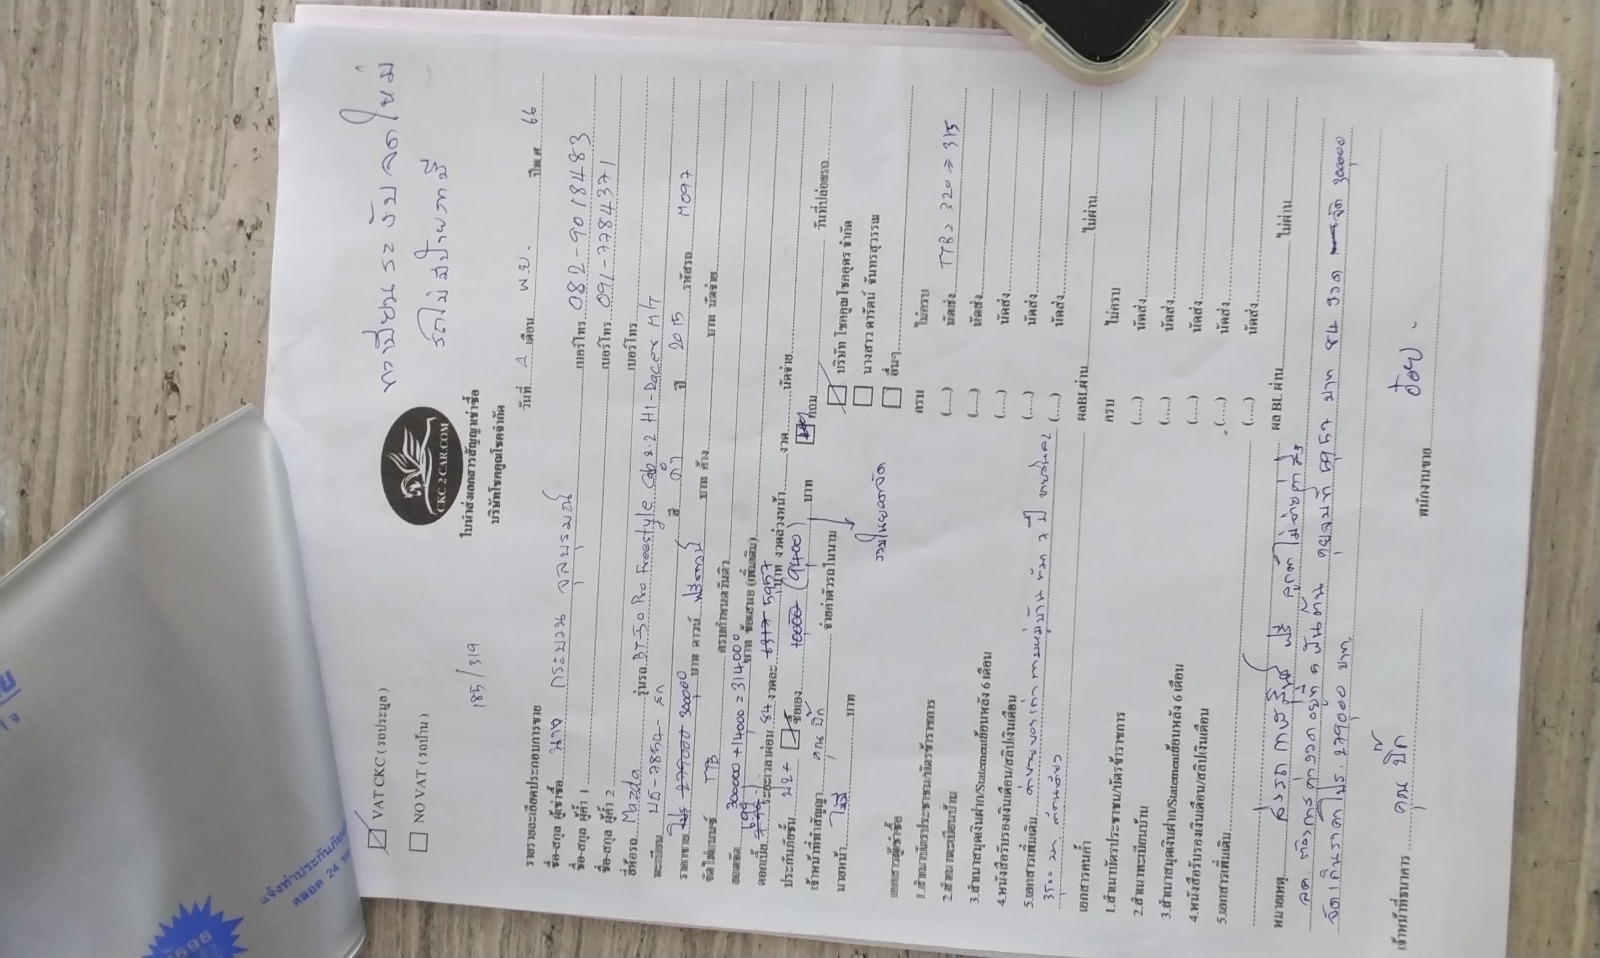 ทะเบียนระงับ จดใหม่
รถไม่มีป้ายภาษี
185/319
☑ VAT CKC ( รถประมูล )
☐ NO VAT ( รถบ้าน )
CKC 2 CAR.COM
ใบนำส่งเอกสารสัญญาเช่าซื้อ
บริษัทโชคคูณโชคจำกัด
วันที่ เดือน พ.ย. ปีพ.ศ. 66
รายรายละเอียดประกอบการขาย
ชื่อ-สกุล ผู้เช่าซื้อ นาง เบอร์โทร. 082-9018483
ชื่อ-สกุล ผู้ค้ำ 1 เบอร์โทร. 091-7784371
ชื่อ-สกุล ผู้ค้ำ 2 เบอร์โทร
ยี่ห้อรถ Mazda รุ่นรถ BT-50 Pro Freestyle Cab 2.2 Hi-Racer M/T
ทะเบียน สี ดำ ปี 2015 รหัสรถ M097
ราคาขาย 279000 300000 บาท ดาวน์ ฟรีดาวน์ บาท ค้าง บาท นัดจ่าย
จัดไฟแนนซ์ TTB ครบกำหนดวันคิว
ยอดจัด 300000 + 14000 = 314000 บาท ข้อเสนอ (เพิ่มเติม)
ดอกเบี้ย ระยะเวลาผ่อน 84 งวดละ 5957 บาท งวดล่วงหน้า งวด นัดจ่าย
ประกันภัยชั้น ป2+ ☑ ซื้อเอง 10000 (9400) บาท แถม
เจ้าหน้าที่ทำสัญญา คุณ บิ๊ก จ่ายค่าตัวรถในนาม ☑ บริษัท โชคคูณโชคอุดร จำกัด วันที่ปล่อยรถ
นายหน้า ไม่มี บาท ☐ นางสาว ดารัตน์ จันทรสุวรรณ
☐ อื่นๆ
รวมในยอดจัด
เอกสารผู้เช่าซื้อ ครบ ไม่ครบ
1.สำเนาบัตรประชาชน/บัตรข้าราชการ (.....) นัดส่ง TTB = 320 => 315
2.สำเนาทะเบียนบ้าน (.....) นัดส่ง
3.สำเนาสมุดเงินฝาก/Statementย้อนหลัง 6 เดือน (.....) นัดส่ง
4.หนังสือรับรองเงินเดือน/สลิปเงินเดือน (.....) นัดส่ง
5.เอกสารเพิ่มเติม (.....) นัดส่ง
3500 บาท
เอกสารคนค้ำ ผลBLผ่าน ไม่ผ่าน
ครบ ไม่ครบ
1.สำเนาบัตรประชาชน/บัตรข้าราชการ (.....) นัดส่ง
2.สำเนาทะเบียนบ้าน (.....) นัดส่ง
3.สำเนาสมุดเงินฝาก/Statementย้อนหลัง 6 เดือน (.....) นัดส่ง
4.หนังสือรับรองเงินเดือน/สลิปเงินเดือน (.....) นัดส่ง
5.เอกสารเพิ่มเติม (.....) นัดส่ง
ผล BL ผ่าน ไม่ผ่าน
หมายเหตุ ฟรี ลูกค้า
ลค. ต้องการค่างวดอยู่ที่ 5 พันต้น คุยจบที่ 5957 บาท 84 งวด จัด 300000
จัดเกินราคาโปร. 279000 บาท
เจ้าหน้าที่ธนาคาร คุณ บิ๊ก พนักงานขาย อ้อย
แจ้งทำประกันภัย
ตลอด 24
596